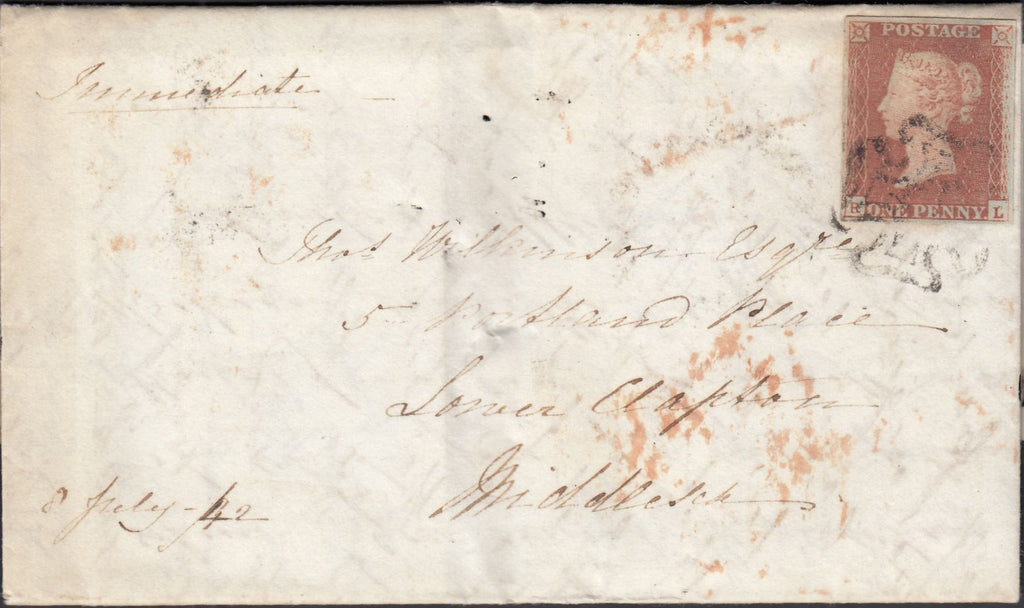 POSTAGE
Immediate
R ONE PENNY L
Thos Wilkinson Esqre
5 Portland Place
Lower Clapton
Middlesex
8 July 42